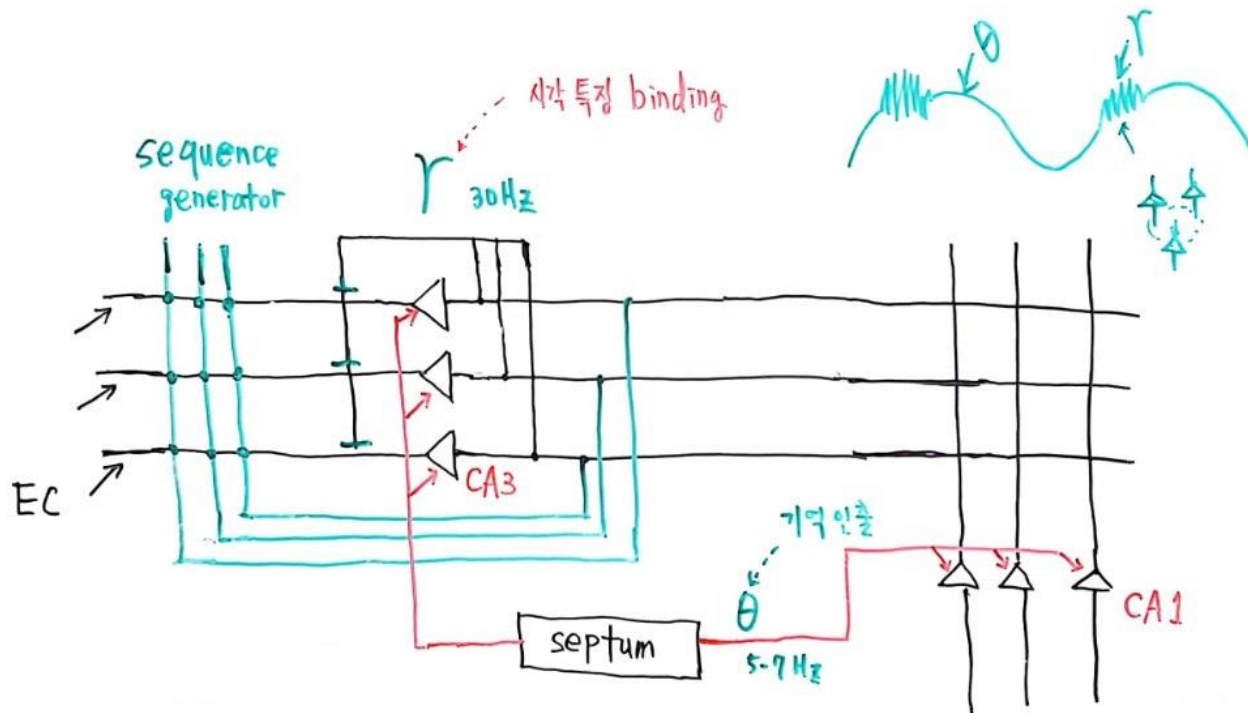 θ
γ
시각 특징 binding
sequence
generator
γ
30Hz
CA3
EC
기억 인출
θ
5-7Hz
septum
CA1